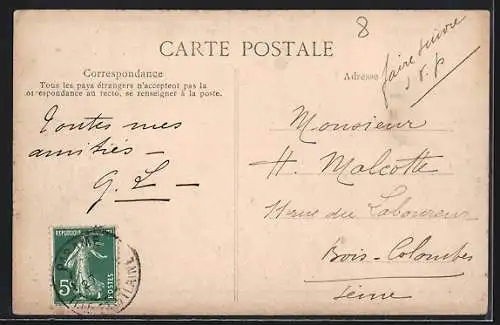 8
CARTE POSTALE
Correspondance
Tous les pays étrangers n'acceptent pas la
correspondance au recto, se renseigner à la poste.
Toutes mes
amitiés —
G. L —
Adresse
faire suivre
s. v. p
Monsieur
H. Malcotte
11 rue du Laboureur
Bois-Colombes
Seine
5c
POSTES